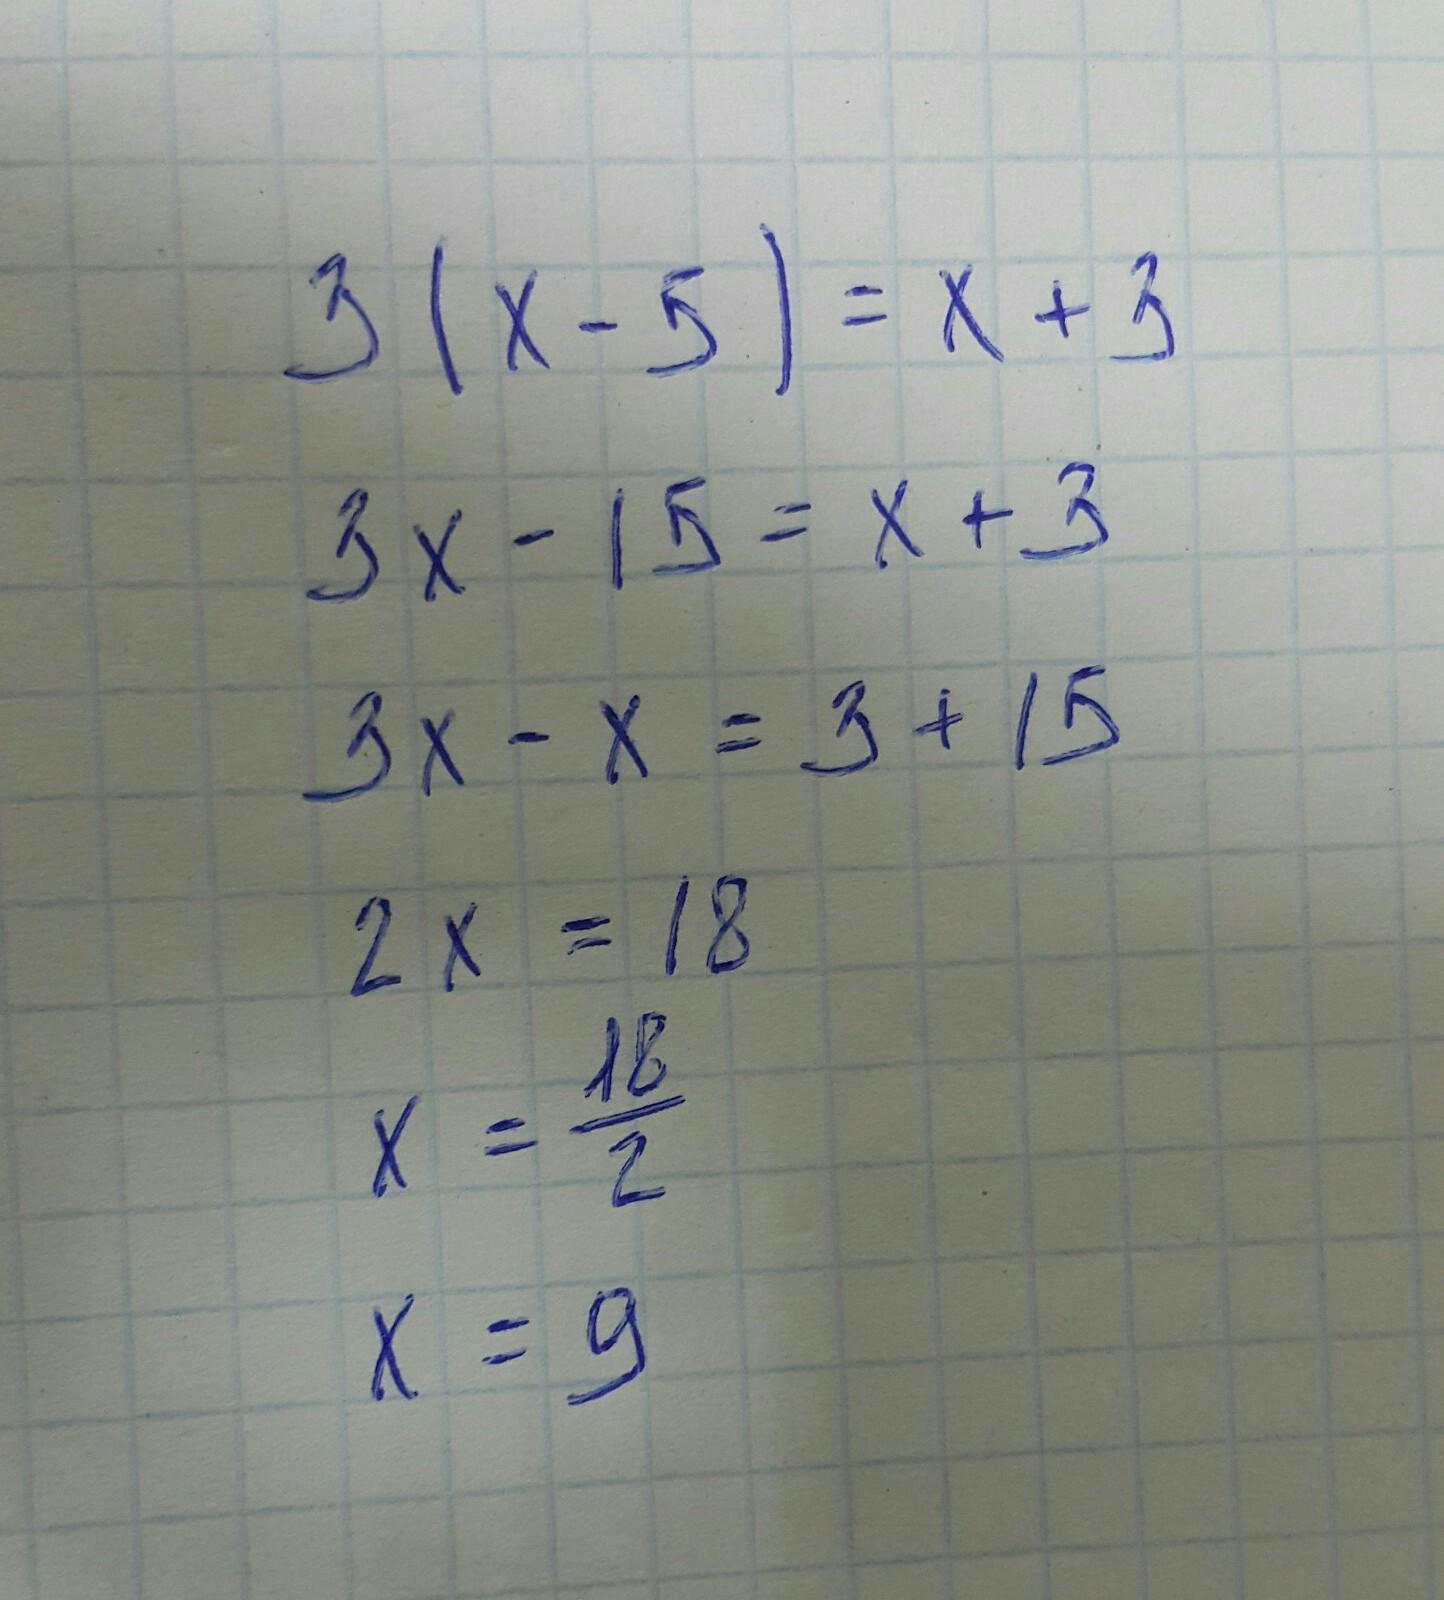 3(x-5)=x+3
3x-15=x+3
3x-x=3+15
2x=18
x=18/2
x=9